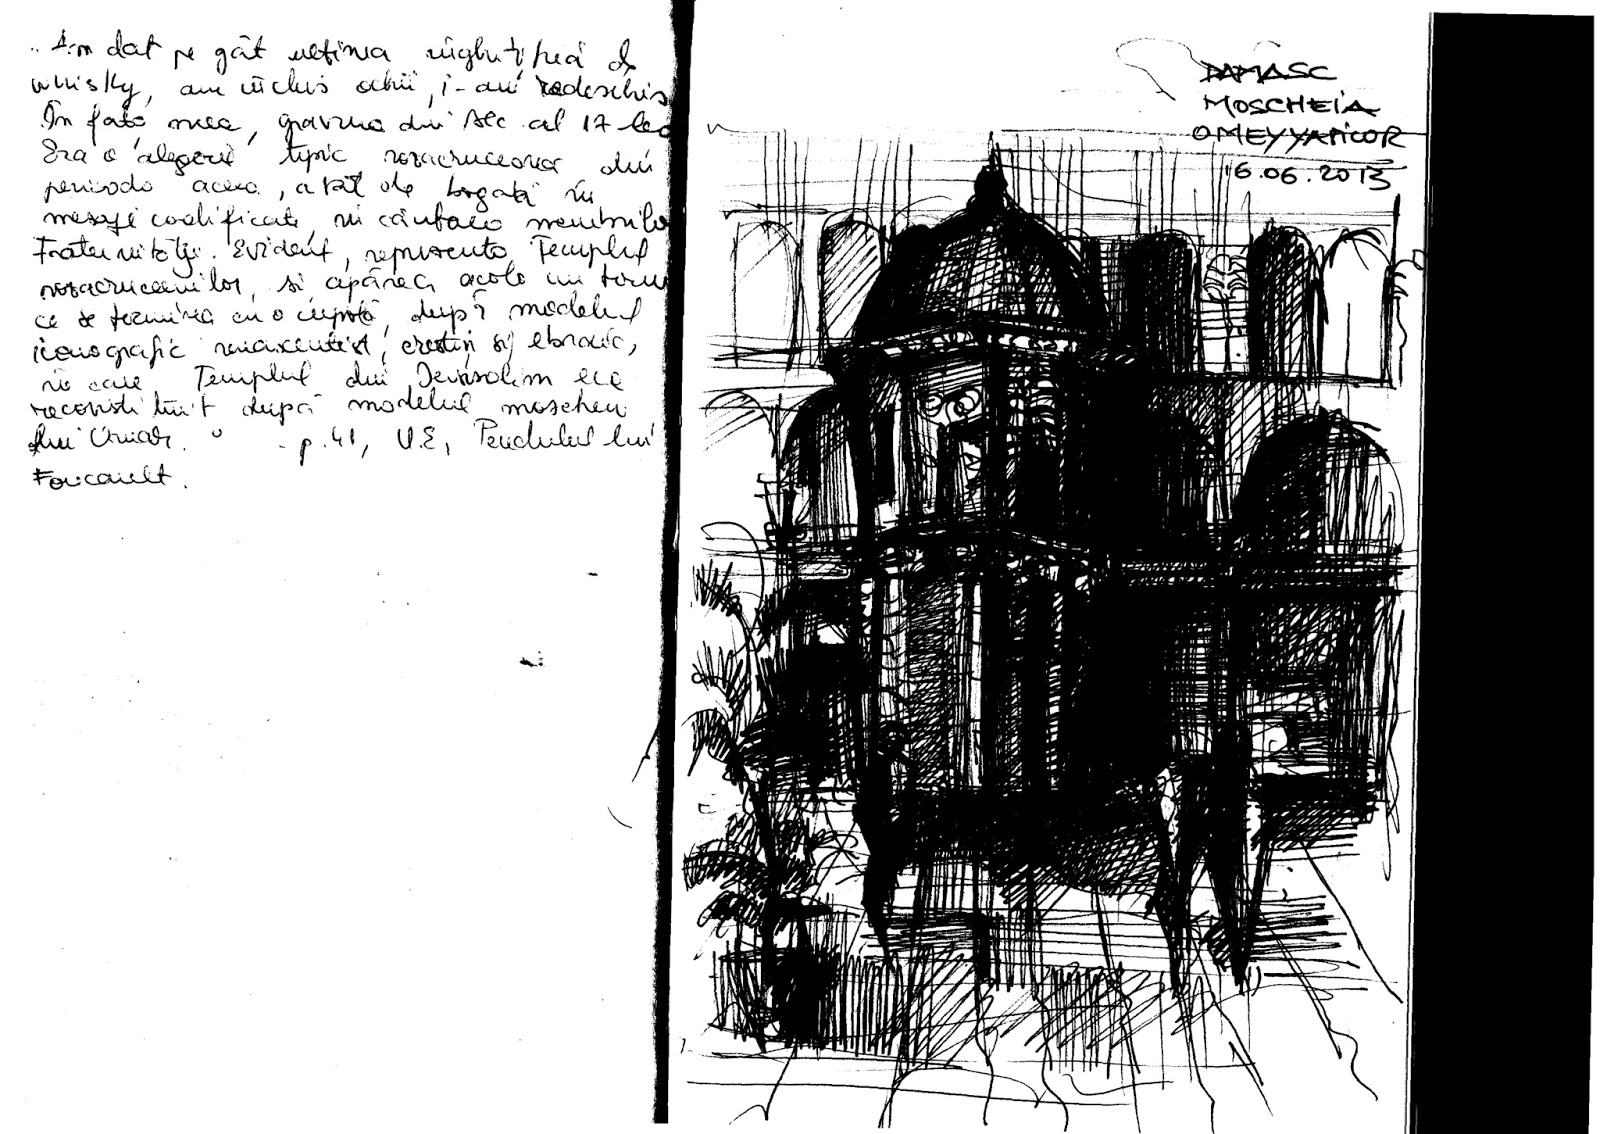 „Am dat pe gât ultima înghițitură de
whisky, am închis ochii, i-am redeschis
În fața mea, gravura din sec al 17-lea
Era o alegorie tipic rosacruceana din
perioada aceea, atât de bogată în
mesaje codificate, în căutarea membrilor
Fraternității. Evident, reprezenta Templul
rosacrucenilor, si apărea acolo un turn
ce se termina cu o cupolă, după modelul
iconografic renascentist, creștin și ebraic,
în care Templul din Ierusalim era
reconstituit după modelul moscheii
lui Omar." - p.41, U.E, Pendulul lui
Foucault.
DAMASC
MOSCHEIA
OMEYYAZILOR
6.06.2013